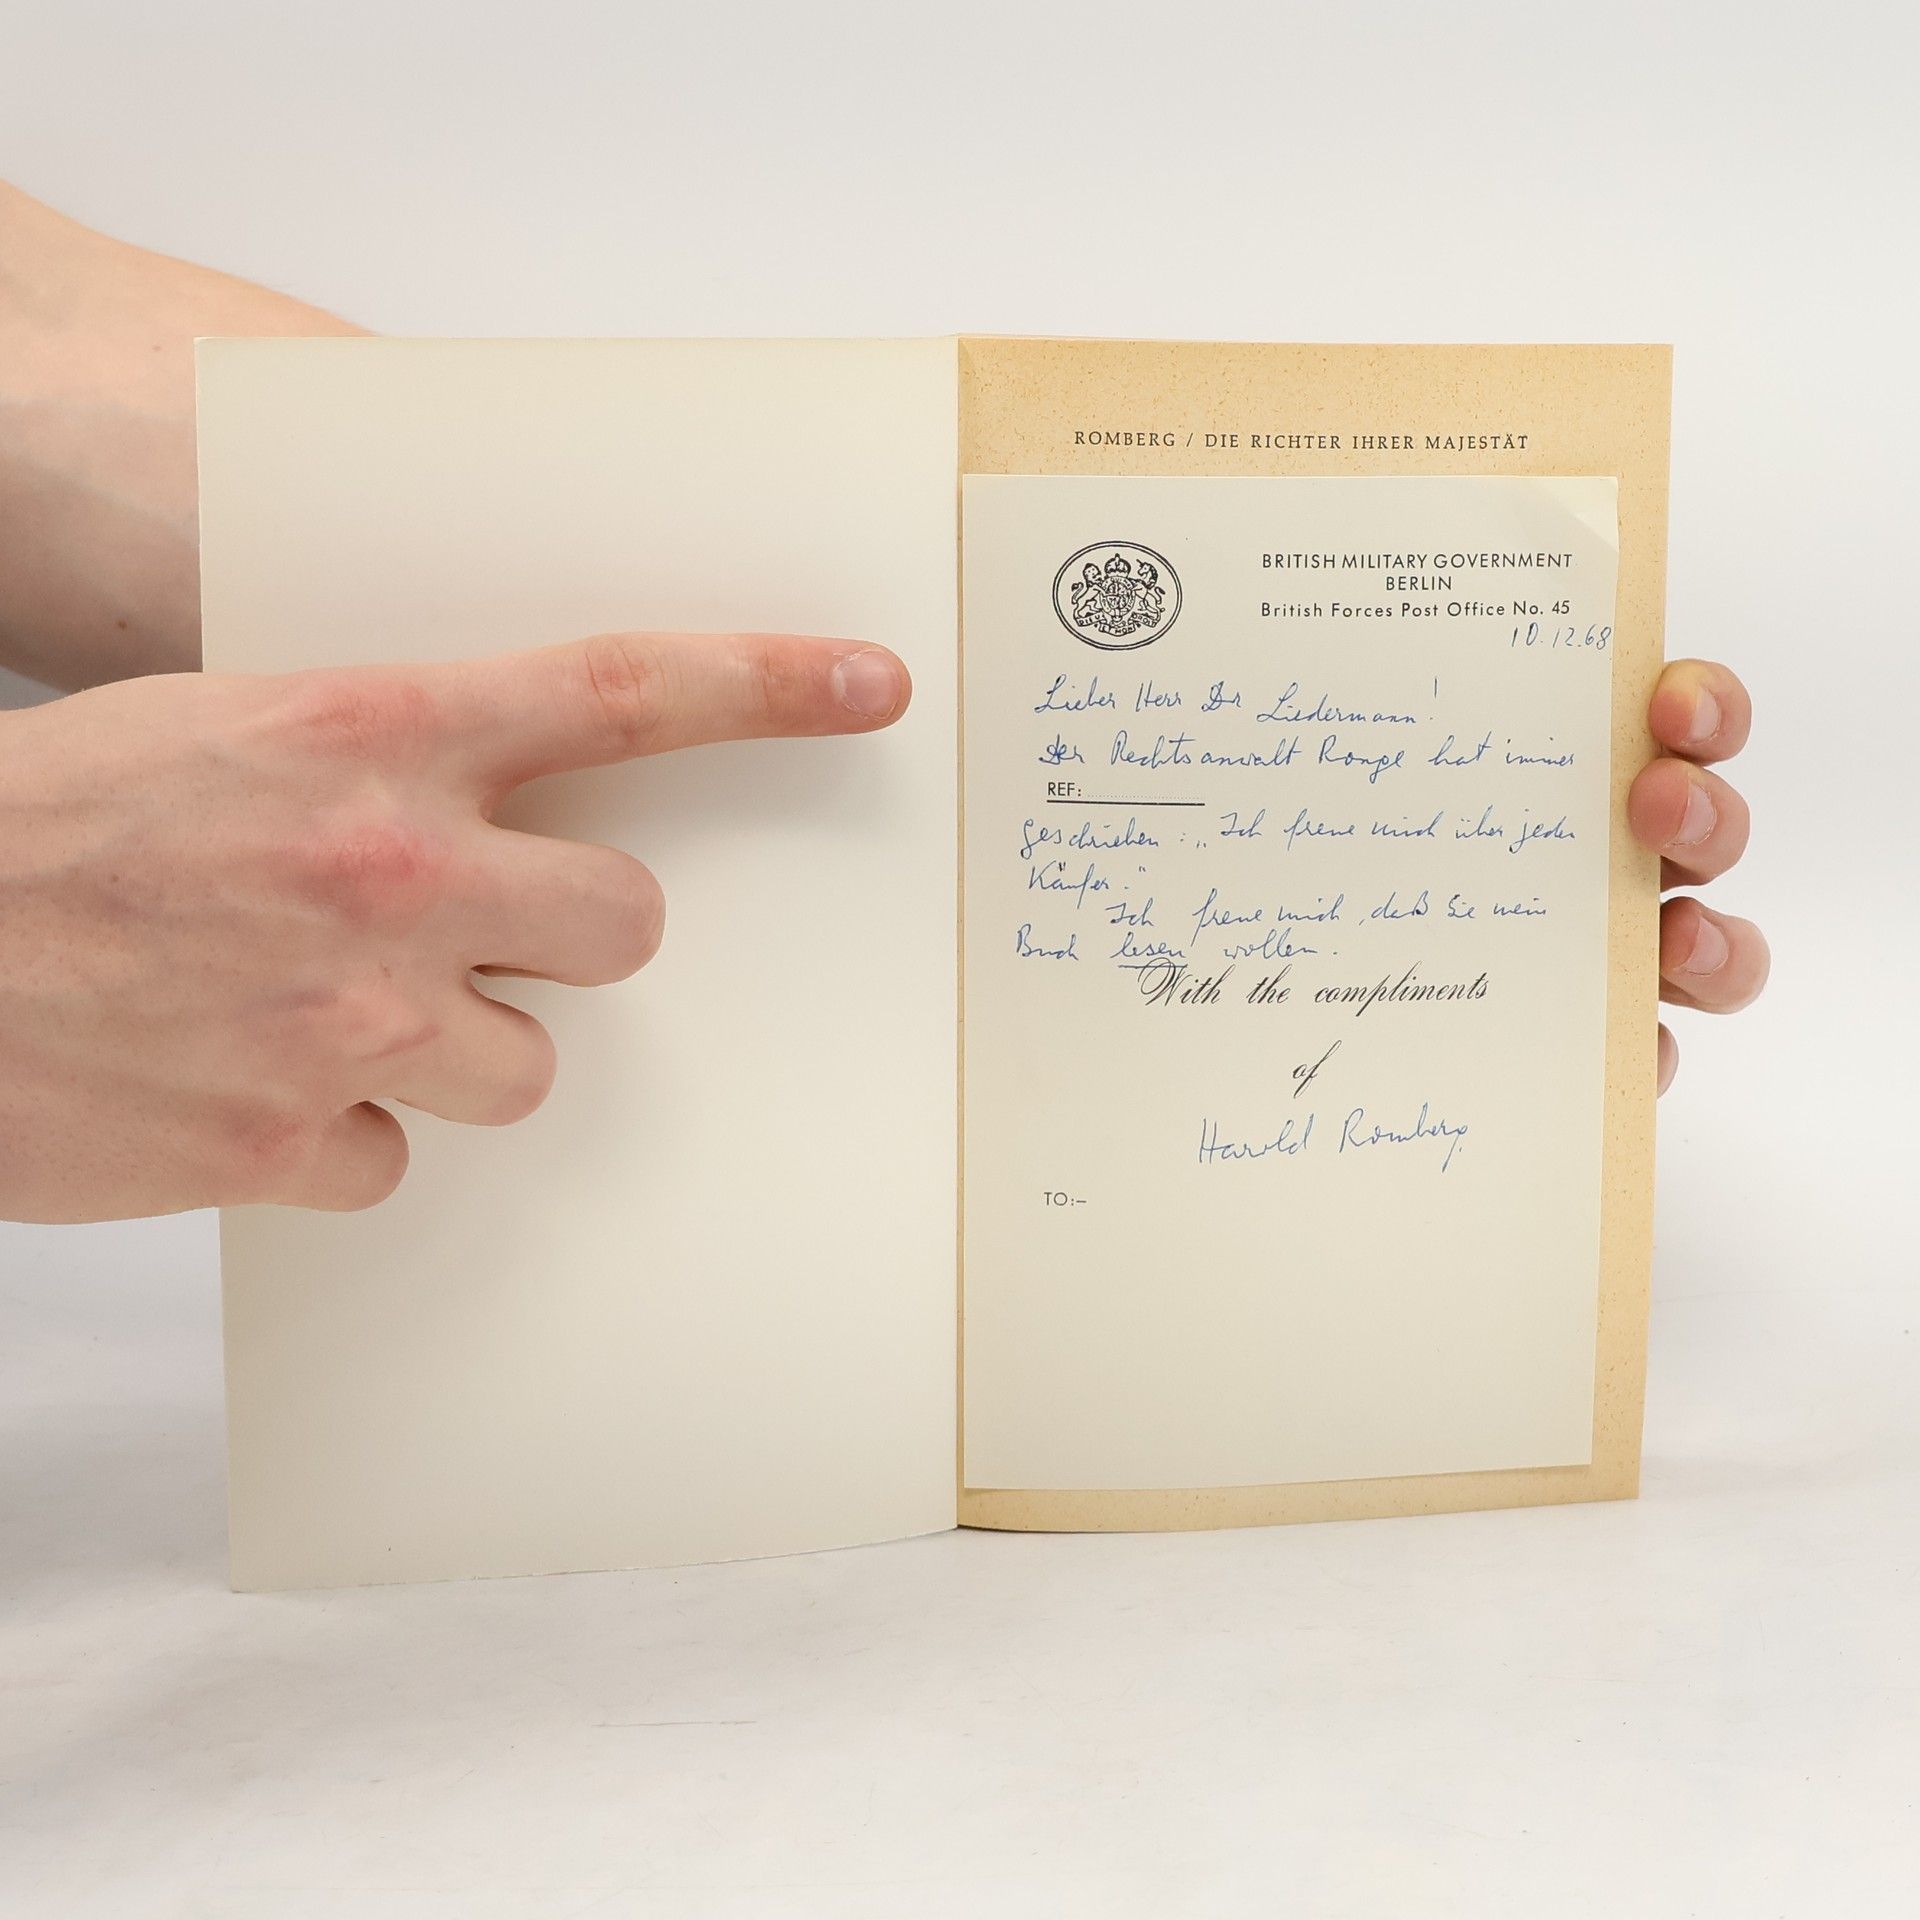 ROMBERG / DIE RICHTER IHRER MAJESTÄT
BRITISH MILITARY GOVERNMENT
BERLIN
British Forces Post Office No. 45
10.12.68
Lieber Herr Dr Liedermann!
Der Rechtsanwalt Ronge hat immer
REF:
geschrieben: „Ich freue mich über jeden
Käufer."
Ich freue mich, daß Sie mein
Buch lesen wollen.
With the compliments
of
Harold Romberg
TO:–